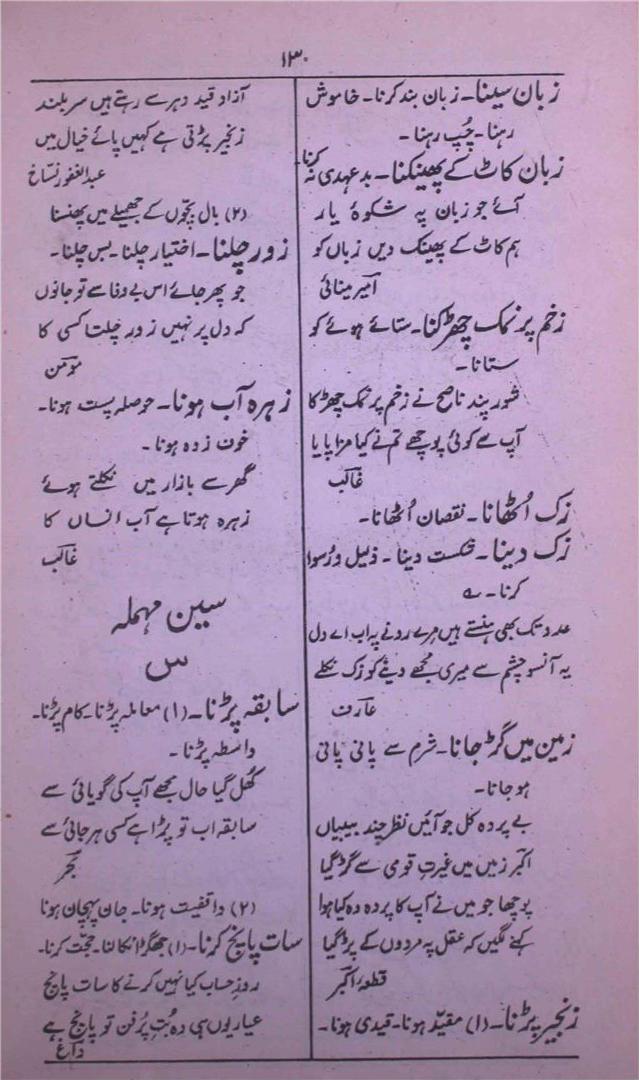 ۱۳۰
زبان سینا۔ زبان بند کرنا۔ خاموش
رہنا۔ چُپ رہنا۔
زبان کاٹ کے پھینکنا۔ بدعہدی نہ کرنا
آئے جو زبان پہ شکوۂ یار
ہم کاٹ کے پھینک دیں زباں کو
امیر مینائی
زخم پر نمک چھڑکنا۔ ستائے ہوئے کو
ستانا۔
شور پند ناصح نے زخم پر نمک چھڑکا
آپ سے کوئی پوچھے تم نے کیا مزا پایا
غالب
زک اُٹھانا۔ نقصان اُٹھانا۔
زک دینا۔ شکست دینا۔ ذلیل و رُسوا
کرنا۔ ے
عدو تک بھی ہنستے ہیں مرے رونے پہ اب اے دل
یہ آنسو چشم سے میری مجھے دینے کو زک نکلے
عارف
زمین میں گڑ جانا۔ شرم سے پانی پانی
ہو جانا۔
بے پردہ کل جو آئیں نظر چند بیبیاں
اکبر زمیں میں غیرتِ قومی سے گڑ گیا
پوچھا جو میں نے آپ کا پردہ وہ کیا ہوا
کہنے لگیں کہ عقل پہ مردوں کے پڑ گیا
قطعہ اکبر
زنجیر پڑنا۔ (۱) مقیّد ہونا۔ قیدی ہونا۔
آزاد قید دہر سے رہتے ہیں سربلند
زنجیر پڑتی ہے کہیں پائے خیال میں
عبدالغفور نساخ
(۲) بال بچّوں کے جھمیلے میں پھنسنا
زور چلنا۔ اختیار چلنا۔ بس چلنا۔
جو پھر جائے اس بے وفا سے تو جانوں
کہ دل پر نہیں زور چلتا کسی کا
مومن
زہرہ آب ہونا۔ حوصلہ پست ہونا۔
خوف زدہ ہونا۔
گھر سے بازار میں نکلتے ہوئے
زہرہ ہوتا ہے آب انساں کا
غالب
سین مہملہ
س
سابقہ پڑنا۔ (۱) معاملہ پڑنا۔ کام پڑنا۔
واسطہ پڑنا۔
کُھل گیا حال مجھے آپ کی گویائی سے
سابقہ اب تو پڑا ہے کسی ہرجائی سے
(۲) واقفیت ہونا۔ جان پہچان ہونا
سات پانچ کرنا۔ (۱) جھگڑا نکالنا۔ حجّت کرنا۔
روزِ حساب کیا نہیں کرنے کا سات پانچ
عیار یوں ہی وہ بُتِ پُرفن تو پانچ ہے
داغ